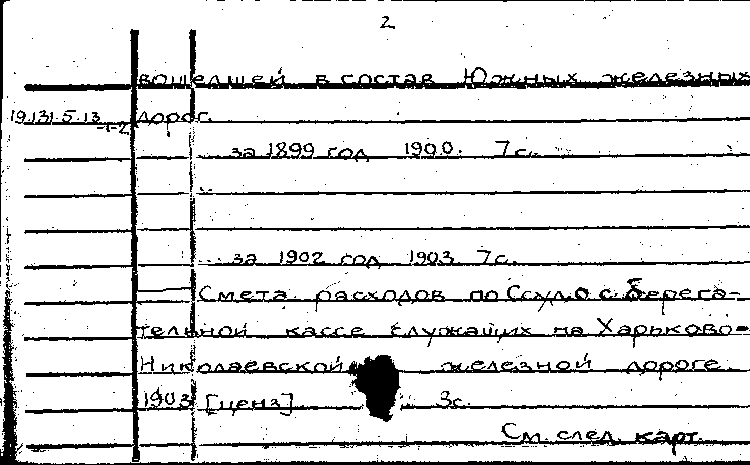 2
вошедшей в состав Южных железных
19.131.5.13 дорог.
-1-2
за 1899 год 1900. 7с.
за 1902 год 1903 7с.
Смета расходов по Ссудо сберега-
тельной кассе служащих на Харьково-
Николаевской железной дороге.
1903 [ценз] 3с.
См. след. карт.